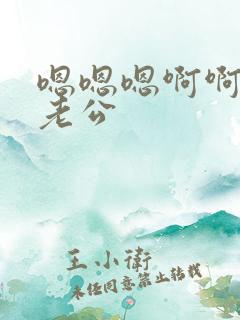 嗯嗯嗯啊啊
老公
王小衛
未任同意禁止转载